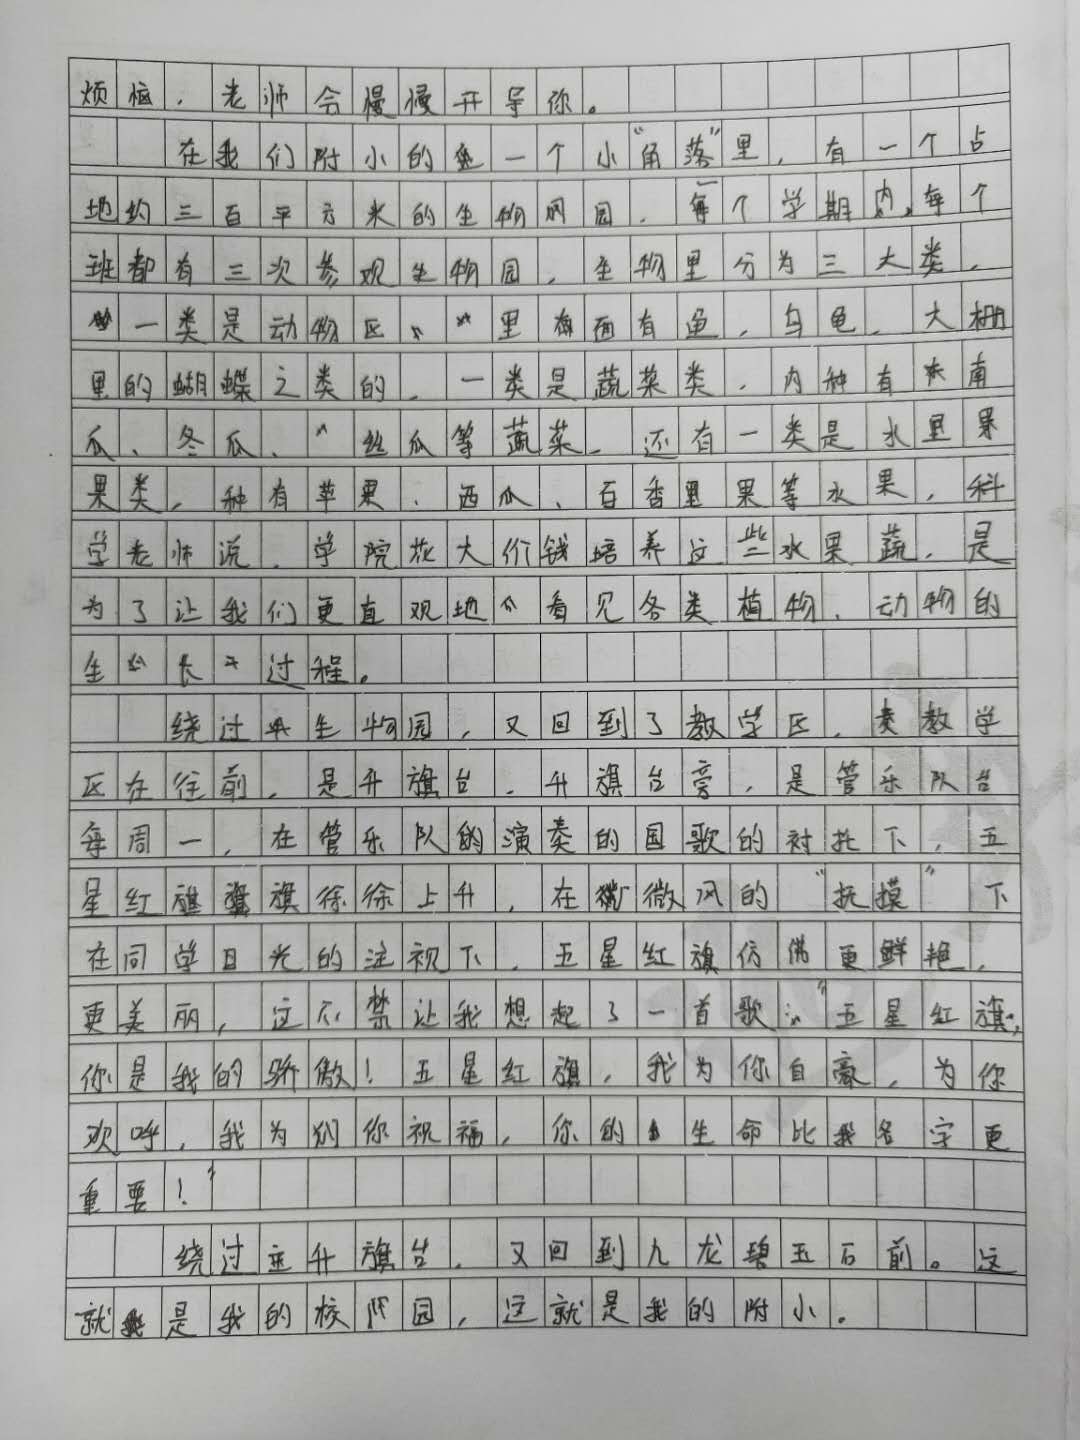 烦恼，老师会慢慢开导你。
在我们附小的一个小“角落”里，有一个占
地约三百平方米的生物园，每个学期内，每个
班都有三次参观生物园，生物里分为三大类，
一类是动物区，里面有鱼，乌龟，大棚
里的蝴蝶之类的，一类是蔬菜类，内种有南
瓜、冬瓜、丝瓜等蔬菜，还有一类是水果
果类，种有苹果、西瓜、百香果等水果，科
学老师说，学院花大价钱培养这些水果蔬，是
为了让我们更直观地看见各类植物、动物的
生长过程。
绕过生物园，又回到了教学区，教学
区在往前，是升旗台，升旗台旁，是管乐队台
每周一，在管乐队的演奏的国歌的衬托下，五
星红旗徐徐上升，在微风的“抚摸”下
在同学目光的注视下，五星红旗仿佛更鲜艳，
更美丽，这不禁让我想起了一首歌：“五星红旗，
你是我的骄傲！五星红旗，我为你自豪，为你
欢呼，我为你祝福，你的生命比我名字更
重要！”
绕过升旗台，又回到九龙碧玉石前。这
就是我的校园，这就是我的附小。